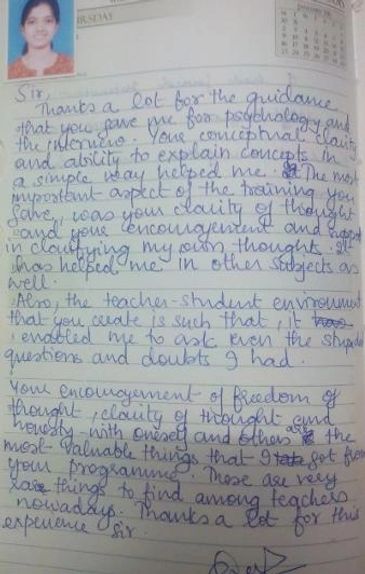 THURSDAY
JANUARY
Sir,
Thanks a lot for the guidance
that you gave me for psychology and
the interview. Your conceptual clarity
and ability to explain concepts in
a simple way helped me. The most
important aspect of the training you
gave, was your clarity of thought
and your encouragement and support
in clarifying my own thoughts. It
has helped me in other subjects as
well.
Also, the teacher-student environment
that you create is such that, it
enabled me to ask even the stupid
questions and doubts I had.
Your encouragement of freedom of
thought, clarity of thought and
honesty with oneself and others are the
most valuable things that I got from
your programme. These are very
rare things to find among teachers
nowadays. Thanks a lot for this
experience Sir.